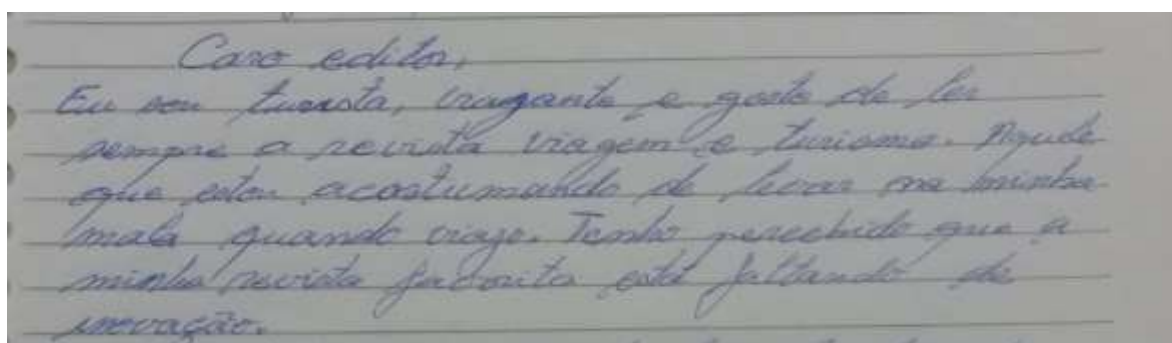 Caro editor,
Eu sou turista, viagante e gosto de ler
sempre a revista viagem e turismo. Aquele
que estou acostumando de levar na minha
mala quando viajo. Tenho percebido que a
minha revista favorita está faltando de
inovação.